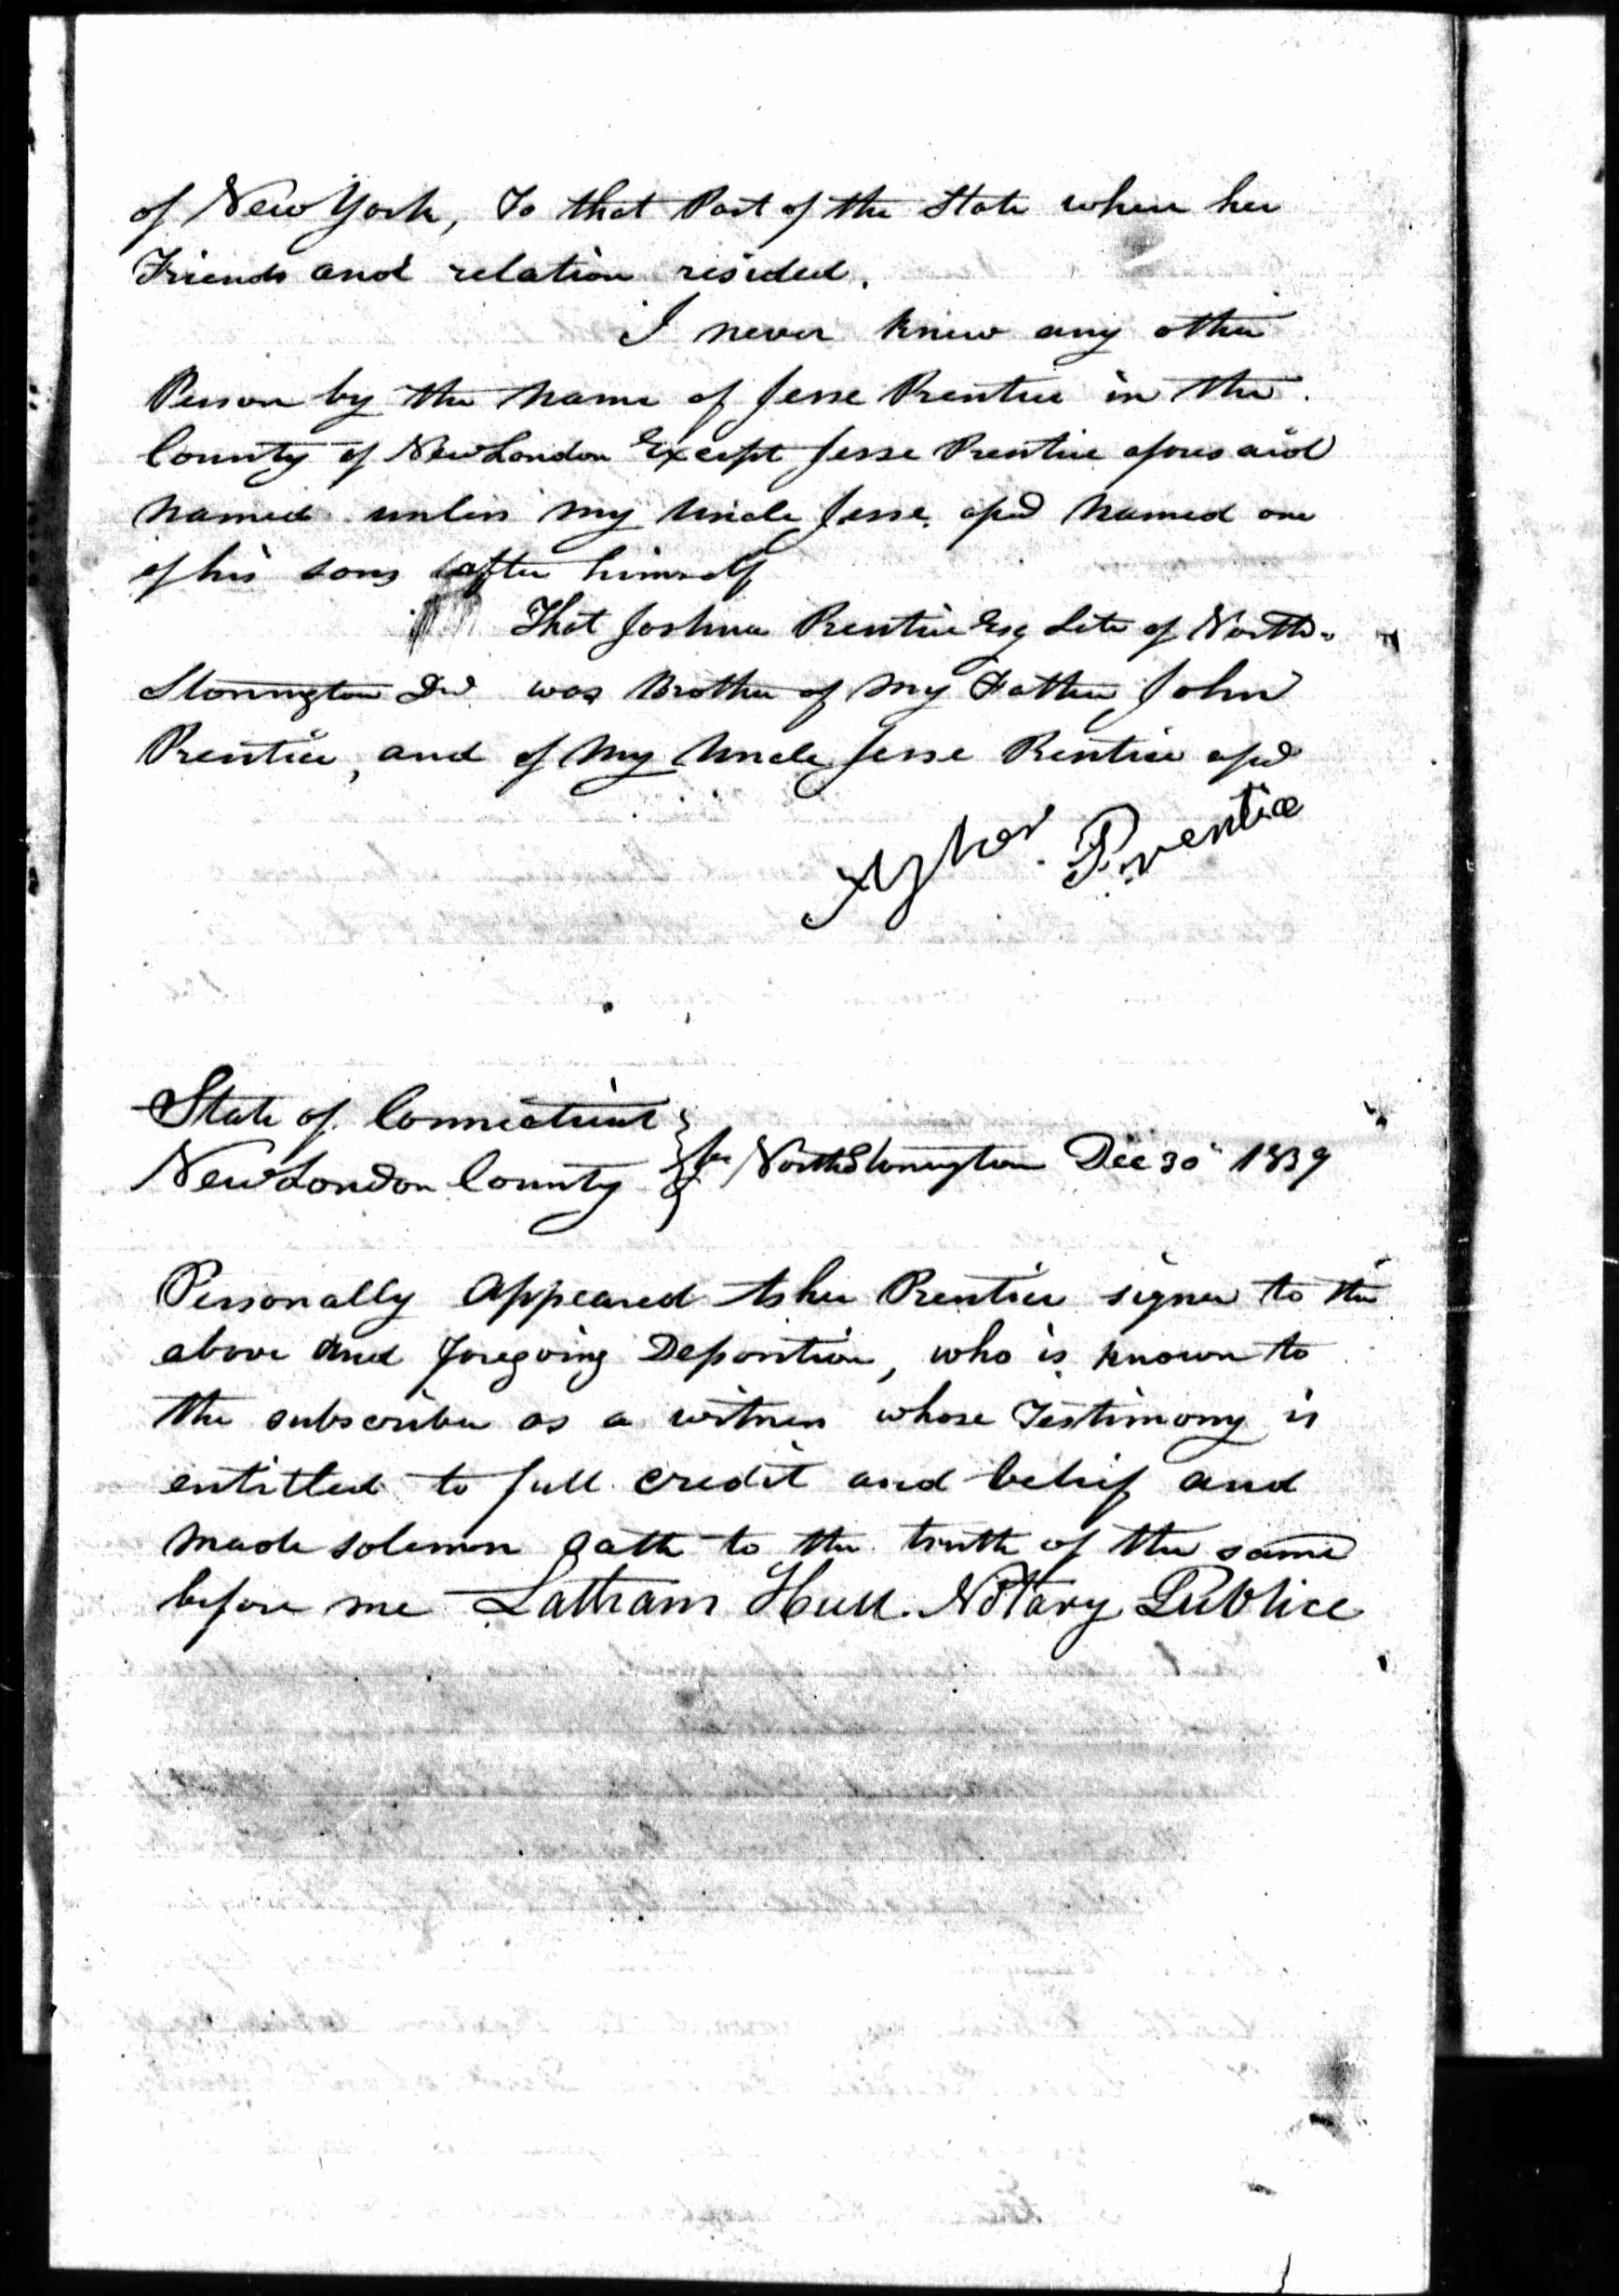 of New York, To that Part of the State where her
Friends and relation resided.
I never knew any other
Person by the name of Jesse Prentice in the
County of New London Except Jesse Prentice aforesaid
named unless my Uncle Jesse afsd named one
of his sons after himself
That Joshua Prentice Esq Late of North-
Stonington Dcd was Brother of My Father John
Prentice, and of My Uncle Jesse Prentice afsd
Asher Prentice
State of Connecticut
New London County } ss North Stonington Dec 30th 1839
Personally Appeared Asher Prentice signer to the
above and foregoing Deposition, who is known to
the subscriber as a witness whose Testimony is
entitled to full credit and belief and
made solemn oath to the truth of the same
before me Latham Hull. Notary Publice